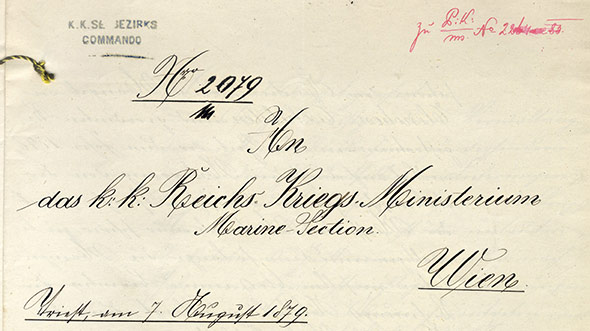 K.K. SEEBEZIRKS
COMMANDO
zu P.K. No
Nro 2079
An
das k: k: Reichs-Kriegs-Ministerium
Marine-Section.
Wien.
Triest, am 7. August 1879.